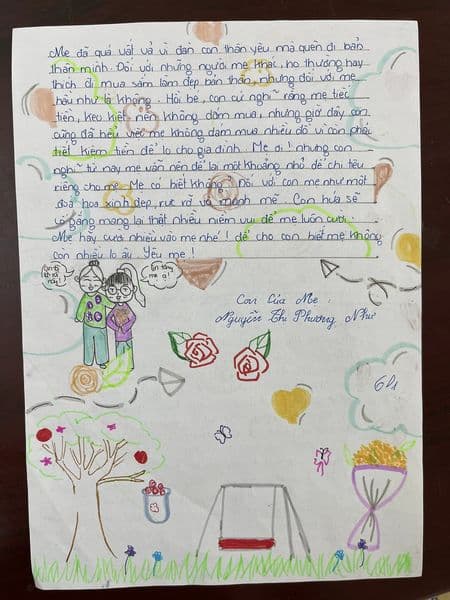 Mẹ đã quá vất vả vì đàn con thân yêu mà quên đi bản
thân mình. Đối với những người mẹ khác, họ thường hay
thích đi mua sắm làm đẹp bản thân, nhưng đối với mẹ
hầu như là không. Hồi bé, con cứ nghĩ rằng mẹ tiếc
tiền, keo kiệt nên không dám mua, nhưng giờ đây con
cũng đã hiểu việc mẹ không dám mua nhiều đồ vì còn phải
tiết kiệm tiền để lo cho gia đình. Mẹ ơi! nhưng con
nghĩ từ nay mẹ vẫn nên để lại một khoảng nhỏ để chi tiêu
riêng cho mẹ. Mẹ có biết không? Đối với con mẹ như một
đoá hoa xinh đẹp, rực rỡ và mạnh mẽ. Con hứa sẽ
cố gắng mang lại thật nhiều niềm vui để mẹ luôn cười.
Mẹ hãy cười nhiều vào mẹ nhé! để cho con biết mẹ không
còn nhiều lo âu. Yêu mẹ!
Con của mẹ
Nguyễn Thị Phương Như